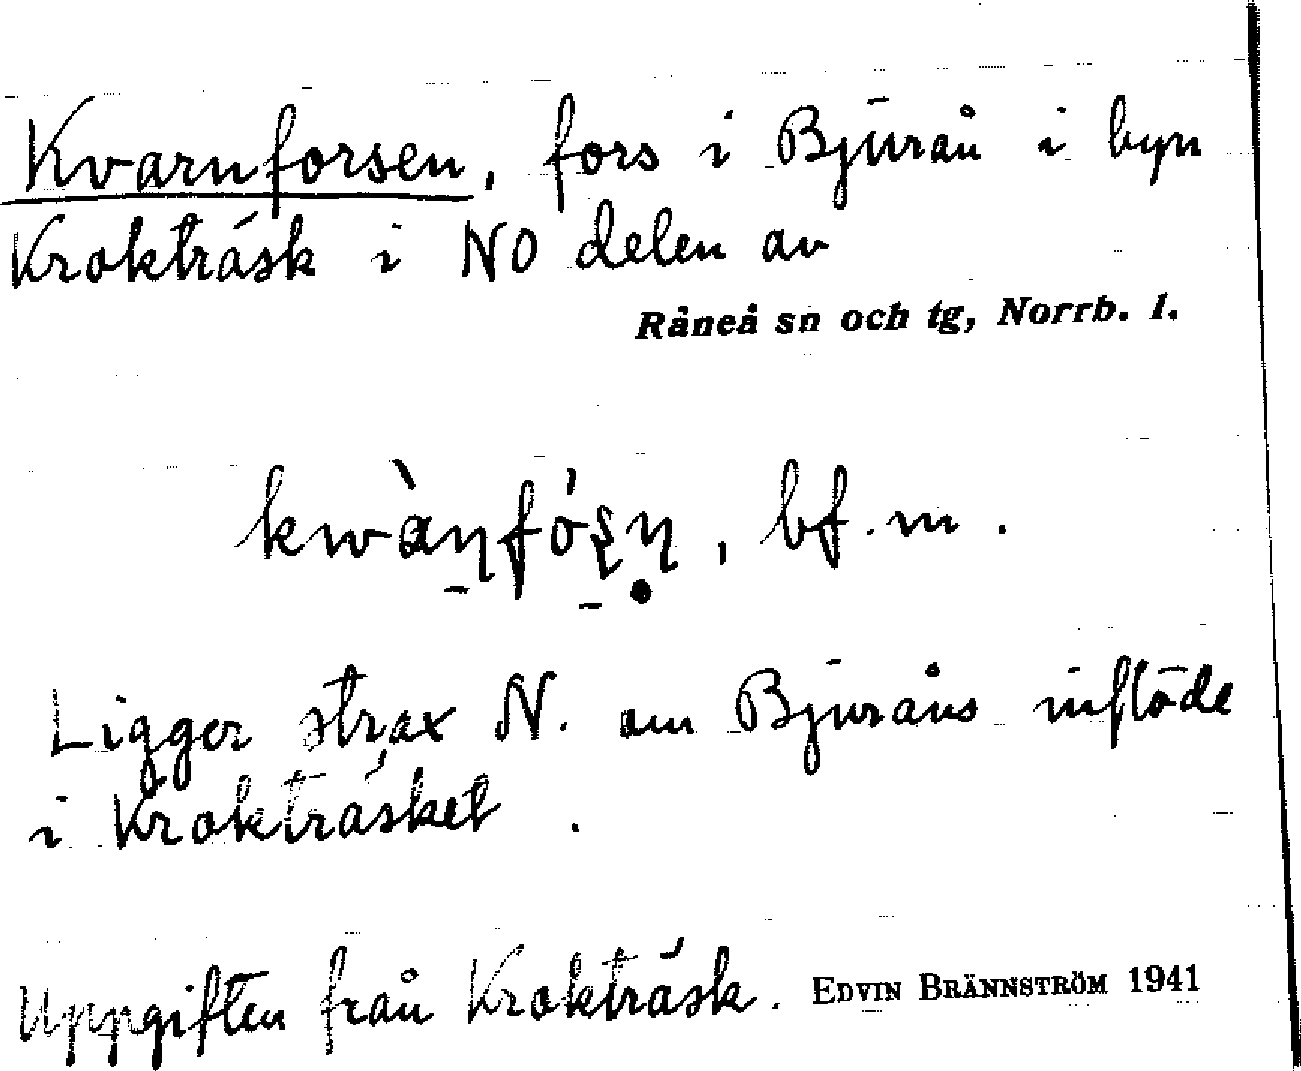 Kvarnforsen, fors i Bjurån i byn
Kroktrásk i NO delen av
Råneå sn och tg, Norrb. l.
kwàɳfóʂɳ̣, bf. m.
Ligger strax N. om Bjuråns inflöde
i Kroktrásket.
Uppgiften från Kroktrásk. EDVIN BRÄNNSTRÖM 1941